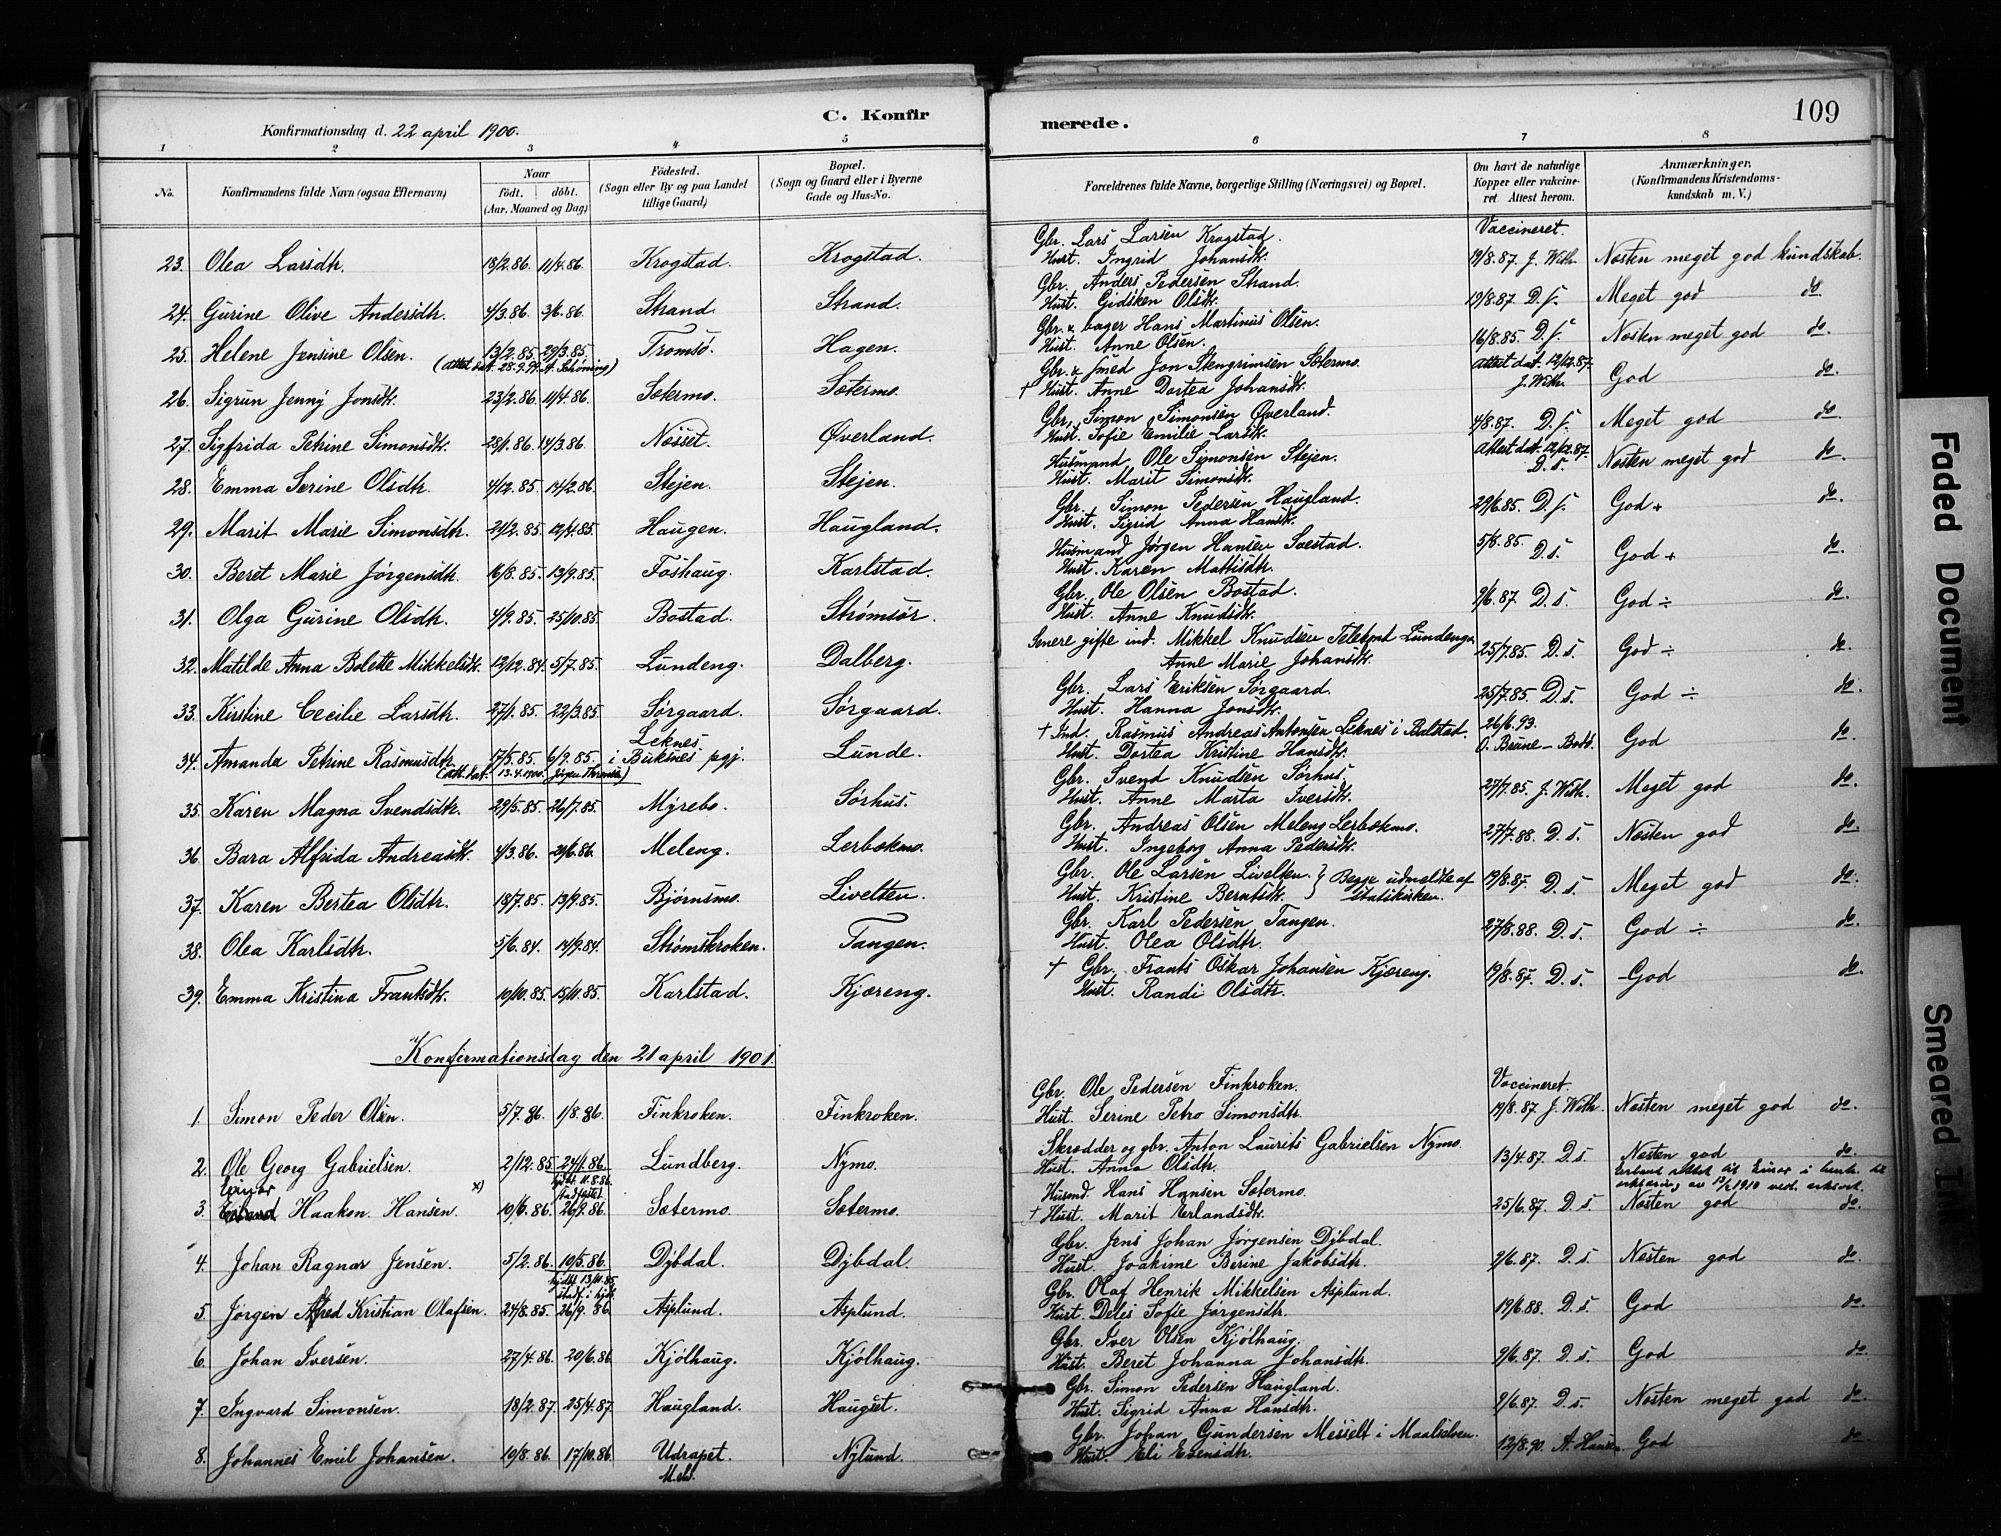 109
C. Konfirmerede.
Konfirmationsdag d. 22 april 1900.
1 2 3 4 5 6 7 8
No. Konfirmandens fulde Navn (ogsaa Efternavn) Naar født. døbt. (Aar, Maaned og Dag) Fødested. (Sogn eller By og paa Landet tillige Gaard) Bopæl. (Sogn og Gaard eller i Byerne Gade og Hus-No. Forældrenes fulde Navne, borgerlige Stilling (Næringsvei) og Bopæl. Om havt de naturlige Kopper eller vakcineret. Attest herom. Anmærkninger. (Konfirmandens Kristendomskundskab m. V.)
Vaccineret.
23. Olea Larsdtr. 18/2.86. 11/4.86. Krogstad. Krogstad. Gbr. Lars Larsen Krogstad. 19/8.87. J. With. Næsten meget god kundskab.
Hust. Ingrid Johansdtr.
24. Gurine Olive Andersdtr. 4/3.86. 3/6.86. Strand. Strand. Gbr. Anders Pedersen Strand. 19/8.87. D. s. Meget god do.
Hust. Gidsken Olsdtr.
25. Helene Jensine Olsen. 13/2.85. 29/3.85. Tromsø. Hagen. Gbr. & bager Hans Martinus Olsen. 16/8.85. D. s. Næsten meget god do.
Hust. Anne Olsen.
26. Sigrun Jenny Jonsdtr. 23/2.86. 11/4.86. Sætermo. Sætermo. Gbr. & smed Jon Stengrimsen Sætermo. Attest dat. 12/12.87. J. With. God do.
† Hust. Anne Dortea Johansdtr.
27. Sigfrida Petrine Simonsdtr. 28/1.86. 14/3.86. Næsset. Øverland. Gbr. Simon Simonsen Øverland. 4/8.87. D. s. Meget god do.
Hust. Sofie Emilie Larsdtr.
28. Emma Serine Olsdtr. 4/12.85. 14/2.86. Stejen. Stejen. Husmand Ole Simonsen Stejen. Attest dat. 12/12.87. D. s. Næsten meget god do.
Hust. Marit Simonsdtr.
29. Marit Marie Simonsdtr. 21/2.85. 12/4.85. Haugen. Haugland. Gbr. Simon Pedersen Haugland. 29/6.85. D. s. God + do.
Hust. Sigrid Anna Hansdtr.
30. Beret Marie Jørgensdtr. 16/8.85. 13/9.85. Foshaug. Karlstad. Husmand Jørgen Hansen Svestad. 5/8.85. D. s. God + do.
Hust. Karen Mattisdtr.
31. Olga Gurine Olsdtr. 4/9.85. 25/10.85. Bostad. Strømsør. Gbr. Ole Olsen Bostad. 9/6.87. D. s. God ÷ do.
Hust. Anne Knudsdtr.
32. Matilde Anna Bolette Mikkelsdtr. 12/12.84. 5/7.85. Lundeng. Dalberg. Senere gifte ind. Mikkel Knudsen Lundeng. 25/7.85. D. s. God ÷ do.
Anne Marie Johansdtr.
33. Kirstine Cecilie Larsdtr. 27/1.85. 22/3.85. Sørgaard. Sørgaard. Gbr. Lars Eriksen Sørgaard. 25/7.85. D. s. God ÷ do.
Hust. Hanna Jonsdtr.
34. Amanda Petrine Rasmusdtr. 17/5.85. 6/9.85. Leknes i Buksnes pgj. Lunde. † Ind. Rasmus Andreas Antonsen Leknes i Balstad. 26/6.93. O. Brune - Bodø. God do.
Hust. Dortea Kristine Hansdtr.
35. Karen Magna Svendsdtr. 29/5.85. 26/7.85. Myrebo. Sørhus. Gbr. Svend Knudsen Sørhus. 27/7.85. J. With. Meget god do.
Hust. Anne Marta Iversdtr.
36. Bara Alfrida Andreasdtr. 4/3.86. 20/6.86. Meleng. Lerbækmo. Gbr. Andreas Olsen Meleng Lerbækmo. 27/7.88. D. s. Næsten god do.
Hust. Ingeborg Anna Pedersdtr.
37. Karen Bertea Olsdtr. 18/7.85. 13/9.85. Bjørnsmo. Livelten. Gbr. Ole Larsen Livelten. } Begge udmeldte af 19/8.87. D. s. Meget god do.
Hust. Kristine Berntsdtr. } statskirken.
38. Olea Karlsdtr. 5/6.84. 14/9.84. Strømskroken. Tangen. Gbr. Karl Pedersen Tangen. 27/8.88. D. s. God ÷ do.
Hust. Olea Olsdtr.
39. Emma Kristina Frantsdtr. 10/10.85. 15/11.85. Karlstad. Kjæreng. † Gbr. Frants Oskar Johansen Kjæreng. 19/8.87. D. s. God do.
Hust. Randi Olsdtr.
Konfirmationsdag den 21 april 1901.
Vaccineret.
1. Simon Peder Olsen. 5/7.86. 1/8.86. Finkroken. Finkroken. Gbr. Ole Pedersen Finkroken. 19/8.87. J. With. Næsten meget god do.
Hust. Serine Petro Simonsdtr.
2. Ole Georg Gabrielsen. 2/12.85. 24/1.86. Lundberg. Nymo. Skrædder og gbr. Anton Laurits Gabrielsen Nymo. 13/4.87. D. s. Næsten god do.
Hust. Anna Olsdtr.
3. Einar Haakon Hansen x) 10/6.86. 26/9.86. Sætermo. Sætermo. Husmd. Hans Hansen Sætermo. 25/6.87. D. s. Næsten god do.
† Hust. Marit Erlandsdtr.
4. Johan Ragnar Jensen. 5/2.86. 10/5.86. Dybdal. Dybdal. Gbr. Jens Johan Jørgensen Dybdal. 9/6.87. D. s. Næsten god do.
Hust. Joakime Berine Jakobsdtr.
5. Jørgen Alfred Kristian Olafsen. 24/8.85. 26/9.86. Asplund. Asplund. Gbr. Olaf Henrik Mikkelsen Asplund. 19/6.88. D. s. God do.
Hust. Deles Sofie Jørgensdtr.
6. Johan Iversen. 27/4.86. 20/6.86. Kjølhaug. Kjølhaug. Gbr. Iver Olsen Kjølhaug. 9/6.87. D. s. God do.
Hust. Beret Johanna Johansdtr.
7. Ingvard Simonsen. 18/2.87. 25/4.87. Haugland. Haugset. Gbr. Simon Pedersen Haugland. 9/6.87. D. s. Næsten meget god do.
Hust. Sigrid Anna Hansdtr.
8. Johannes Emil Johansen. 19/8.86. 17/10.86. Udrapet. Nylund. Gbr. Johan Gundersen Messelt i Maalselven. 12/8.90. A. Hansen. God do.
Hust. Eli Evensdtr.
Faded Document
Smeared Ink